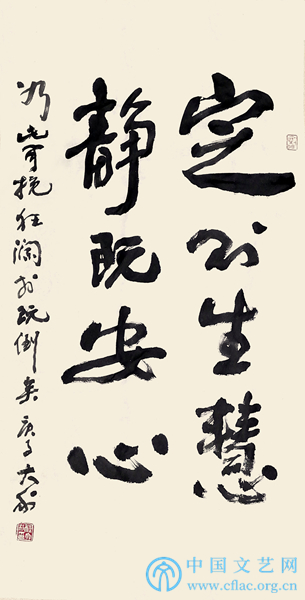 定以生慧
静既安心
此可挽狂澜於既倒矣 庚子大
中国文艺网
www.cflac.org.cn